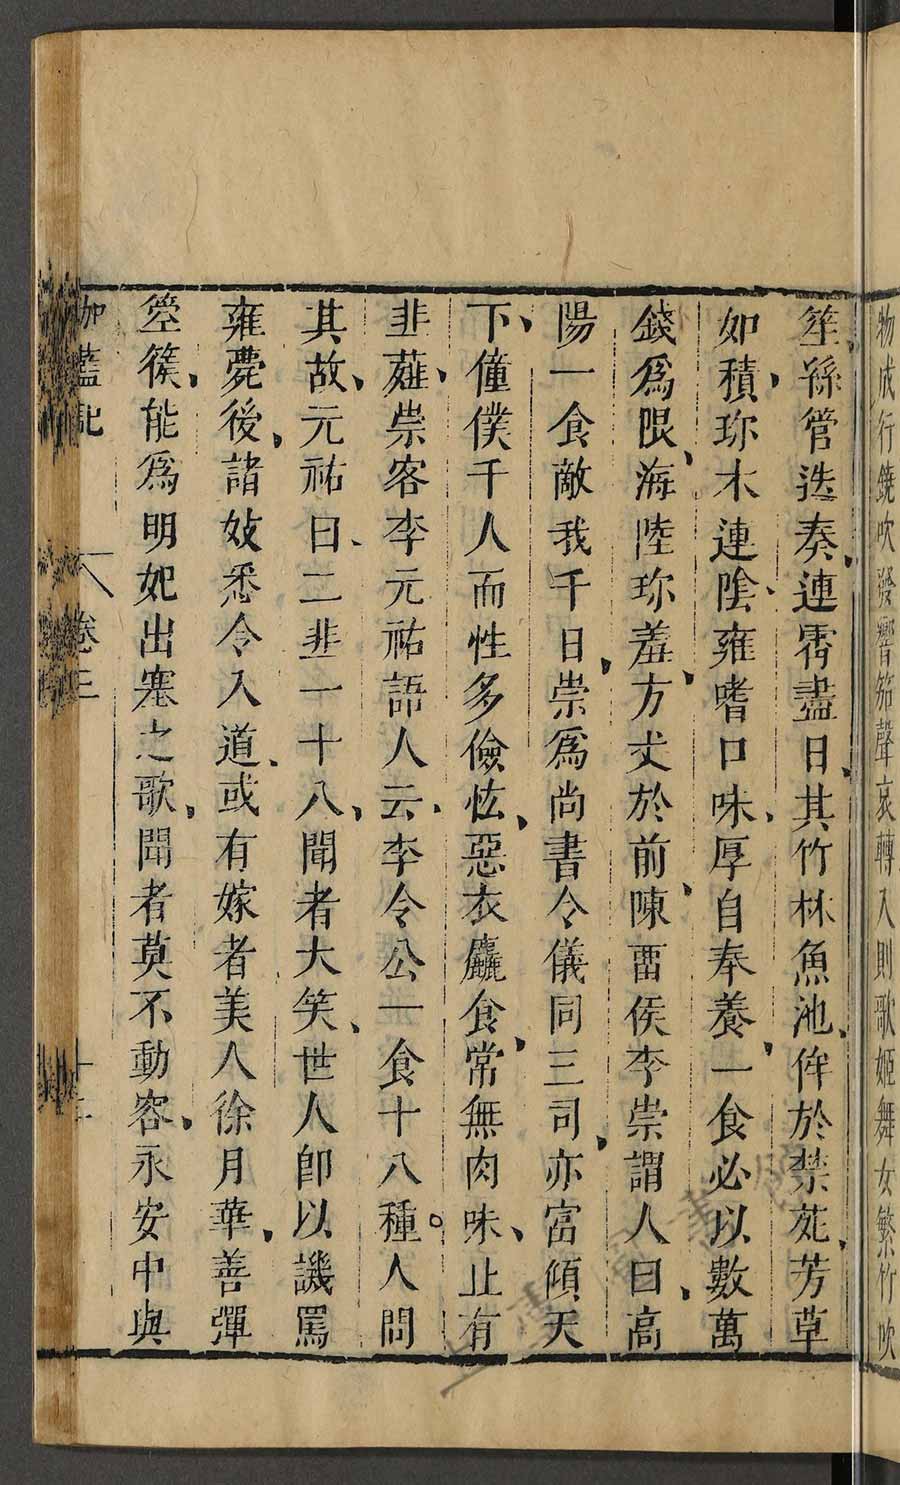 物成行鐃吹發響笳聲哀轉入則歌姬舞女繁竹吹
笙絲管迭奏連霄盡日其竹林魚池侔於禁苑芳草
如積珎木連陰雍嗜口味厚自奉養一食必以數萬
錢爲限海陸珎羞方丈於前陳畱侯李崇謂人曰高
陽一食敵我千日崇爲尚書令儀同三司亦富傾天
下僮僕千人而性多儉恡惡衣麤食常無肉味止有
韭薤崇客李元祐語人云李令公一食十八種人問
其故元祐曰二韭一十八聞者大笑世人卽以譏罵
雍薨後諸妓悉令入道或有嫁者美人徐月華善彈
箜篌能爲明妃出塞之歌聞者莫不動容永安中與
伽藍記 卷三